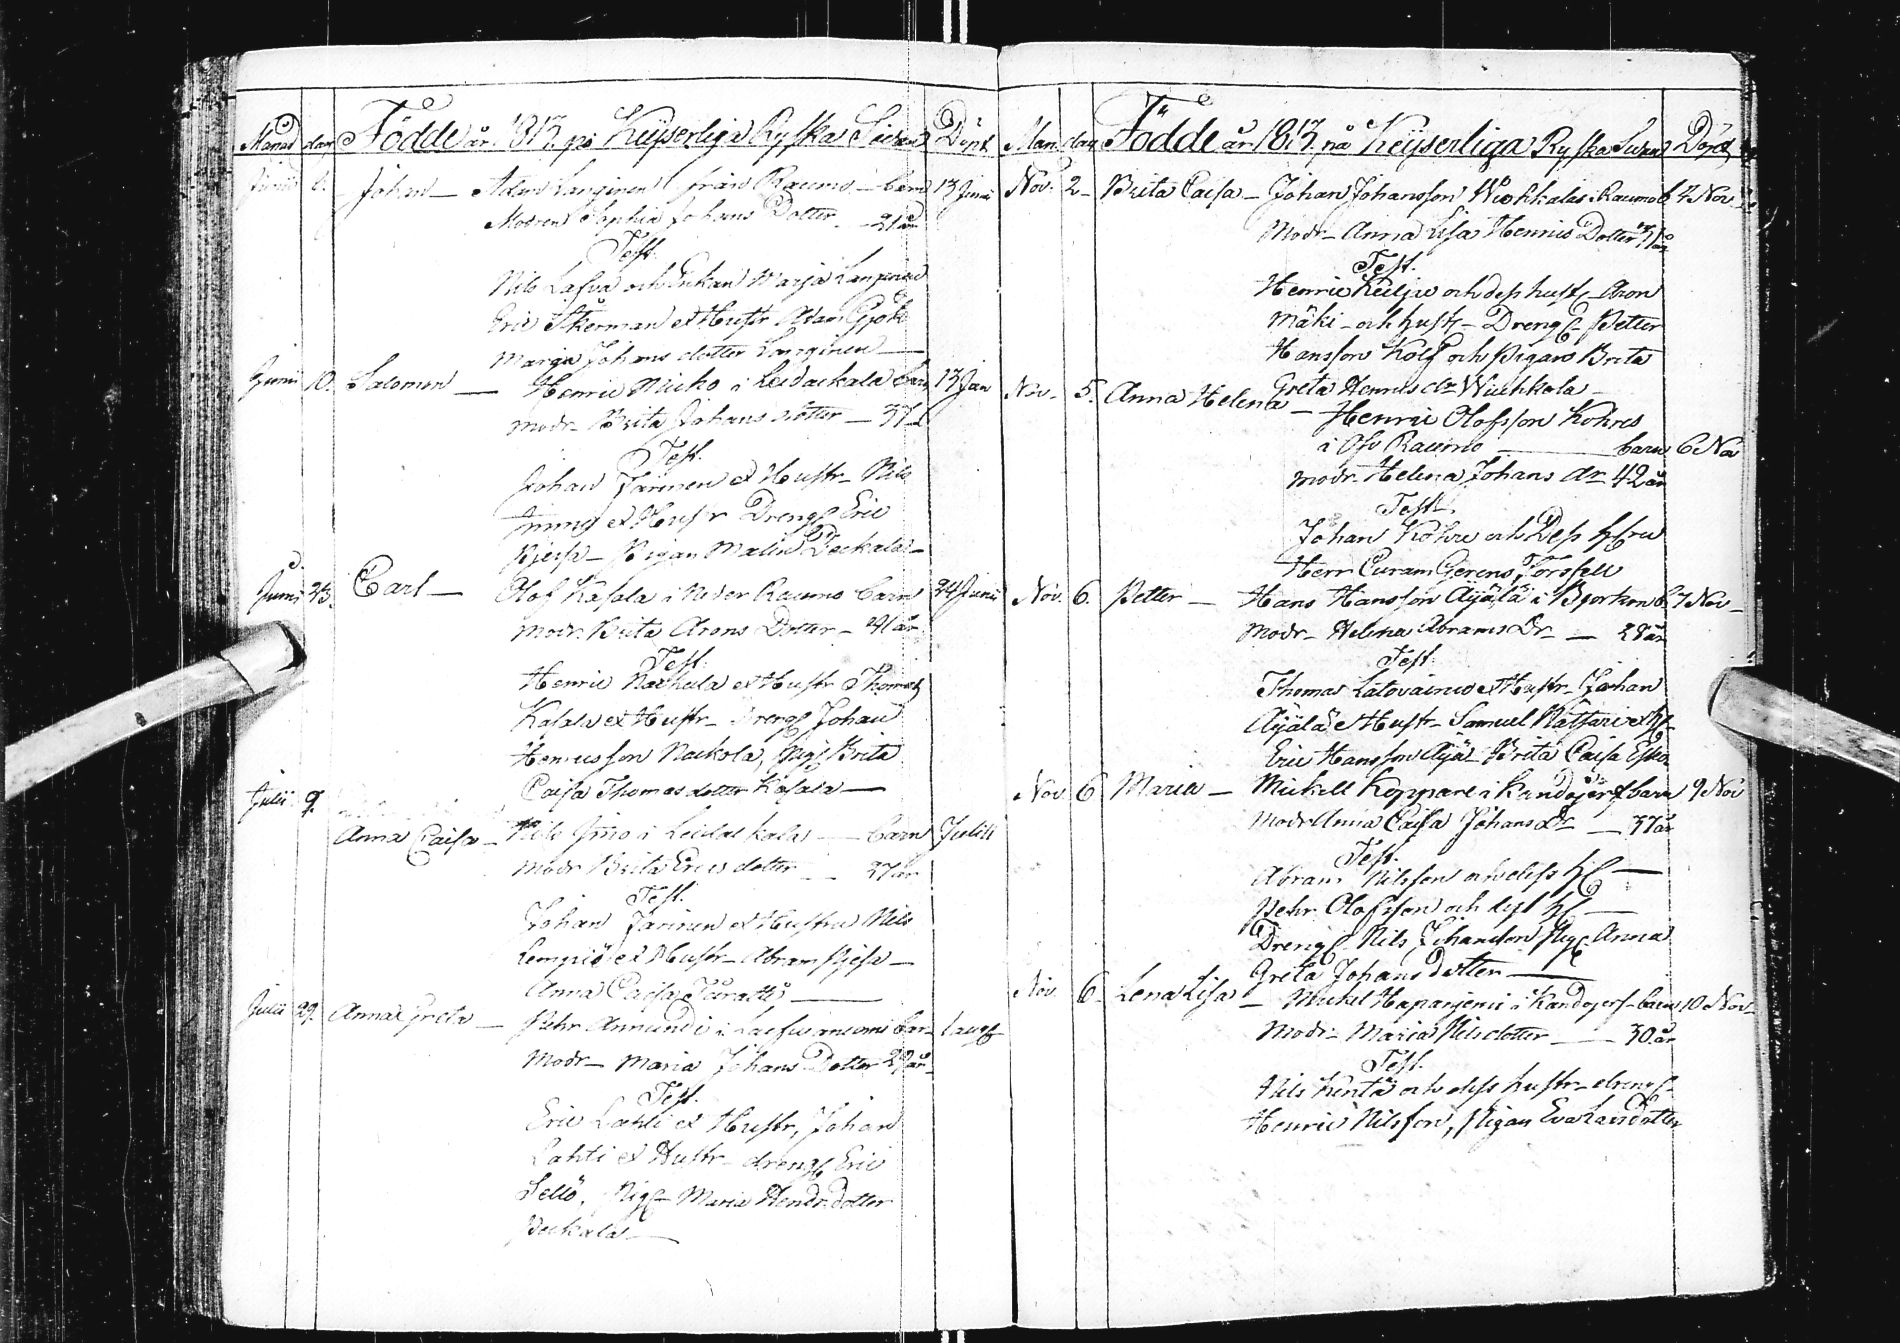 Månad dag Födde år 1813 på Keijserliga Ryska Sidan Döpt
Junii 8. Johan — Adam Langinen från Raumo — barn 13 Junii
Modren Sophia Johans Dotter — 31 år
Test.
Nils Lassva och Enkan Marja Langinen
Eric Åkerman et Hustr Adam
Maria Johans dotter Langinen —
Junii 10. Salomon — Henric Micko i barn 13 Jun
modr. Brita Johans dotter — 37
Test.
Johan Janinen et Hustr. Nils
et Hustr Drengs Eric
Pigan Malin
Junii 23. Carl — Olof Kasala i Neder Raumo barn 24 Junii
Modr. Brita Arons Dotter — 41 år
Test.
Henric Nackula et Hustr Thomas
Kasala et Hustr — Drengs Johan
Henricsson Nackola, Pigs Brita
Caisa Thomas dotter Kasala —
Julii 9.
Anna Caisa — Nils Jmo i — barn Julii 11
modr Brita Erics dotter — 27 år
Test.
Johan Janinen et Hustru Nils
Lempiö et Hustr — Abram
Anna Caisa —
Julii 29. Anna Greta — Pehr Annundi i bar — 1 aug
Modr — Maria Johans Dotter 29 år —
Test.
Eric Lahti et Hustr, Johan
Lahti et Hustr — drengs Eric
Sellö, Pigs — Maria Hendr. dotter
Peckala —
Mån. dag Födde år 1813, på Keijserliga Ryska Sidan Döpt
Nov. 2 — Brita Caisa — Johan Johansson Wiohkala i Raumo b. 4 Nov.
Modr — Anna Lisa Henrics Dotter 31 år
Test.
Henric Keiju och dess hust — Aron
Mäki — och hust — Drengs — Petter
Hansson Kolj och Pigan Brita
Greta Henrics dr Wiehkola —
Nov. 5. Anna Helena — Henric Olofsson Kohres
i Ofv Raumo — barn 6 Nov
modr. Helena Johans dr 42 år
Test.
Johan Kohre och Dess hustru
Herr Curam Gerens Forssell
Nov. 6. Petter — Hans Hansson Äyälä i Björkon b. 7 Nov —
Modr — Helena Abrams Dr — 28 år
Test.
Thomas Latovainio et Hustr — Johan
Äyälä et Hustr — Samuel Ratsari et
Eric Hansson Äyä — Brita Caisa Esko
Nov 6 Maria — Mickell Koppare i Kandojerf barn 9 Nov
Modr Anna Caisa Johans Dr — 37 år
Test.
Abram Nilsson och dess h —
Pehr Olofsson och dess h —
Drengs — Nils Johansson Pigs Anna
Greta Johans dotter —
Nov 6. Lena Lisa — Mickel Haparjenii i Kandojerf — barn 10 Nov —
Modr — Maria Nilsdotter — 30 år
Test.
Nils Kentä och dess hustr — drengs —
Henric Nilsson, Pigan Eva Larsdotter